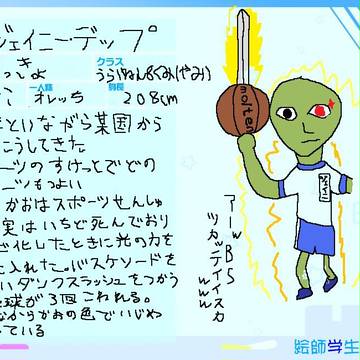 ジェイニーデップ
き
クラス
っしょ
うらねん8くみ(やみ)
一人称
オレっち
身長
208cm
といながら某国から
こうしてきた
ーツのすけっとでどの
ーツもつよい
かおはスポーツせんしゅ
実はいちど死んでおり
化したときに光の力を
入れた。バスケソードを
いダンクスラッシュをつかう
球が3回こわれる。
ながらかおの色でいじめ
ている
molten
アーw B5
ツカッテイイスカwww
絵師学生